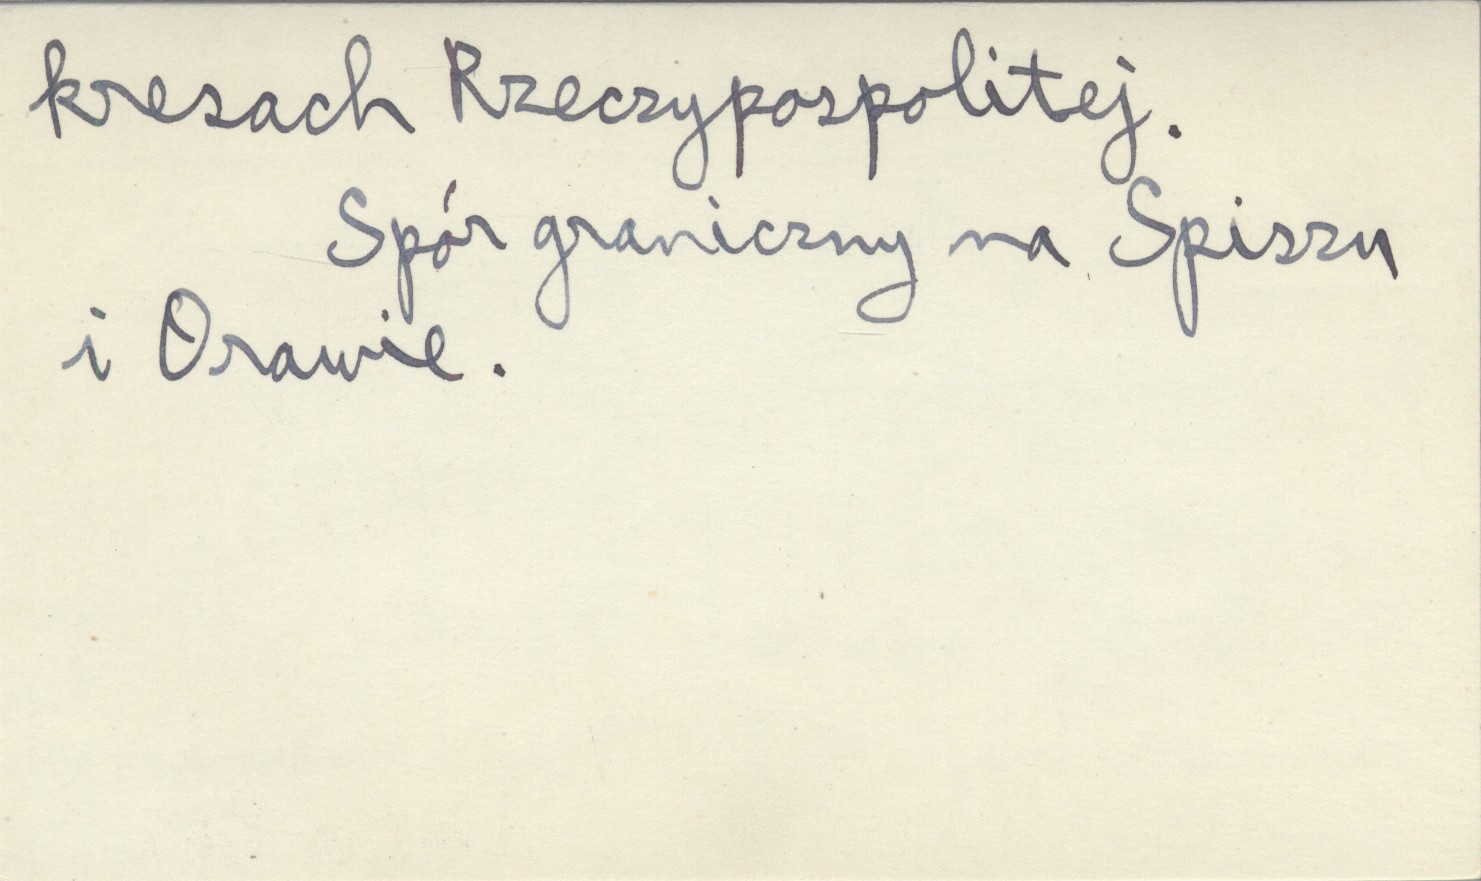 kresach Rzeczypospolitej.
Spór graniczny na Spiszu
i Orawie.